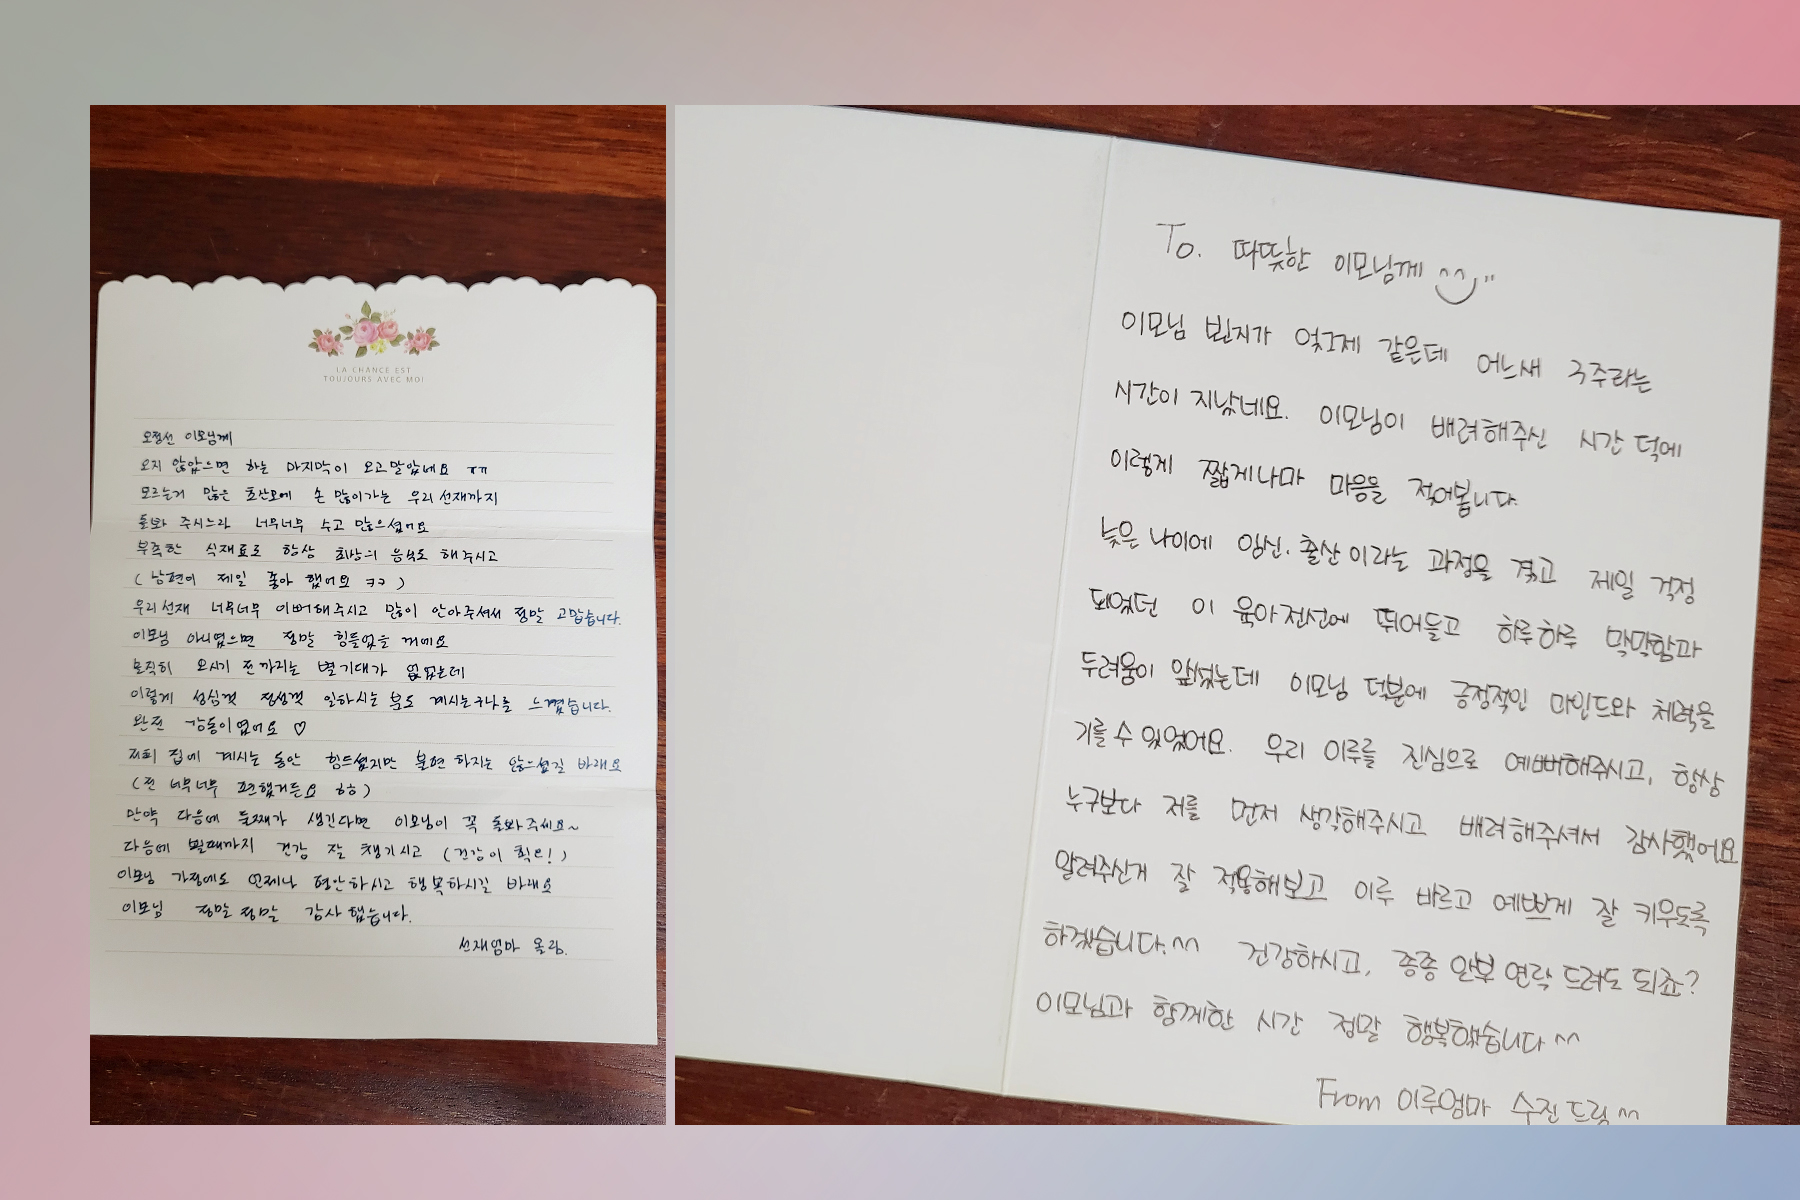 LA CHANCE EST
TOUJOURS AVEC MOI
오정선 이모님께
오지 않았으면 하는 마지막이 오고 말았네요 ㅠㅠ
모르는거 많은 초산모에 손 많이가는 우리 선재까지
돌봐 주시느라 너무너무 수고 많으셨어요
부족한 식재료로 항상 최상의 음식도 해 주시고
( 남편이 제일 좋아 했어요 ㅋㅋ )
우리 선재 너무너무 이뻐해주시고 많이 안아주셔서 정말 고맙습니다.
이모님 아니였으면 정말 힘들었을 꺼예요
솔직히 오시기 전까지는 별 기대가 없었는데
이렇게 성심껏 정성껏 일하시는 분도 계시는구나를 느꼈습니다.
완전 감동이였어요 ♡
저희 집에 계시는 동안 힘드셨지만 불편 하지는 않으셨길 바래요
( 전 너무너무 편했거든요 ㅎㅎ )
만약 다음에 둘째가 생긴다면 이모님이 꼭 돌봐주세요~
다음에 뵐때까지 건강 잘 챙기시고 ( 건강이 최고! )
이모님 가정에도 언제나 편안하시고 행복하시길 바래요
이모님 정말 정말 감사 했습니다.
선재엄마 올림.
To. 따뜻한 이모님께 ^^
이모님 뵌지가 엊그제 같은데 어느새 3주라는
시간이 지났네요. 이모님이 배려해주신 시간 덕에
이렇게 짧게나마 마음을 적어봅니다.
늦은 나이에 임신·출산 이라는 과정을 겪고 제일 걱정
되었던 이 육아전선에 뛰어들고 하루하루 막막함과
두려움이 앞섰는데 이모님 덕분에 긍정적인 마인드와 체력을
기를 수 있었어요. 우리 이루를 진심으로 예뻐해주시고, 항상
누구보다 저를 먼저 생각해주시고 배려해주셔서 감사했어요
알려주신거 잘 적용해보고 이루 바르고 예쁘게 잘 키우도록
하겠습니다.^^ 건강하시고, 종종 안부 연락 드려도 되죠?
이모님과 함께한 시간 정말 행복했습니다 ^^
From 이루엄마 수진 드림 ^^